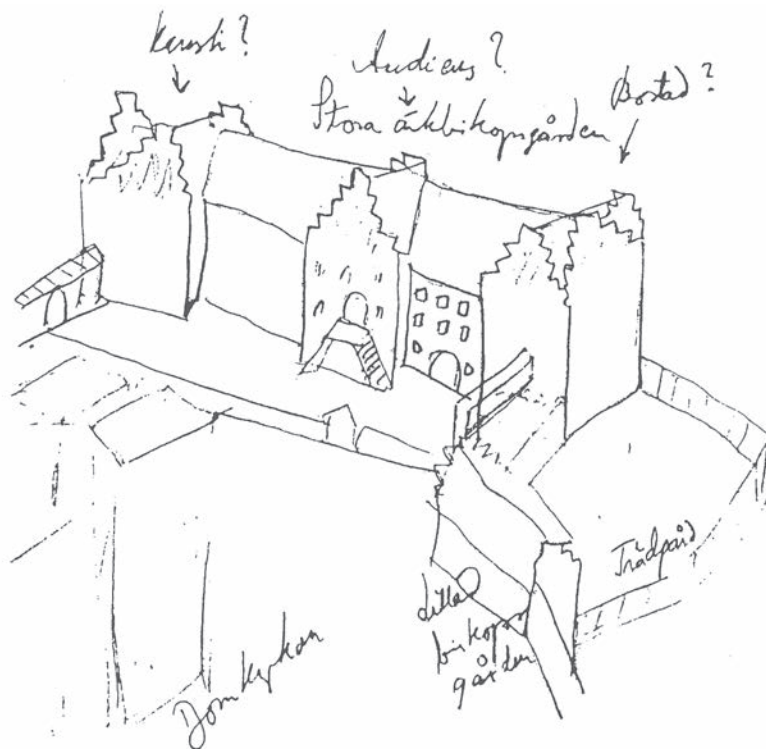 Kansli?
Audiens?
Stora ärkbikopsgården
Bostad?
Trädgård
Lilla
biskops
gården
Domkyrkan